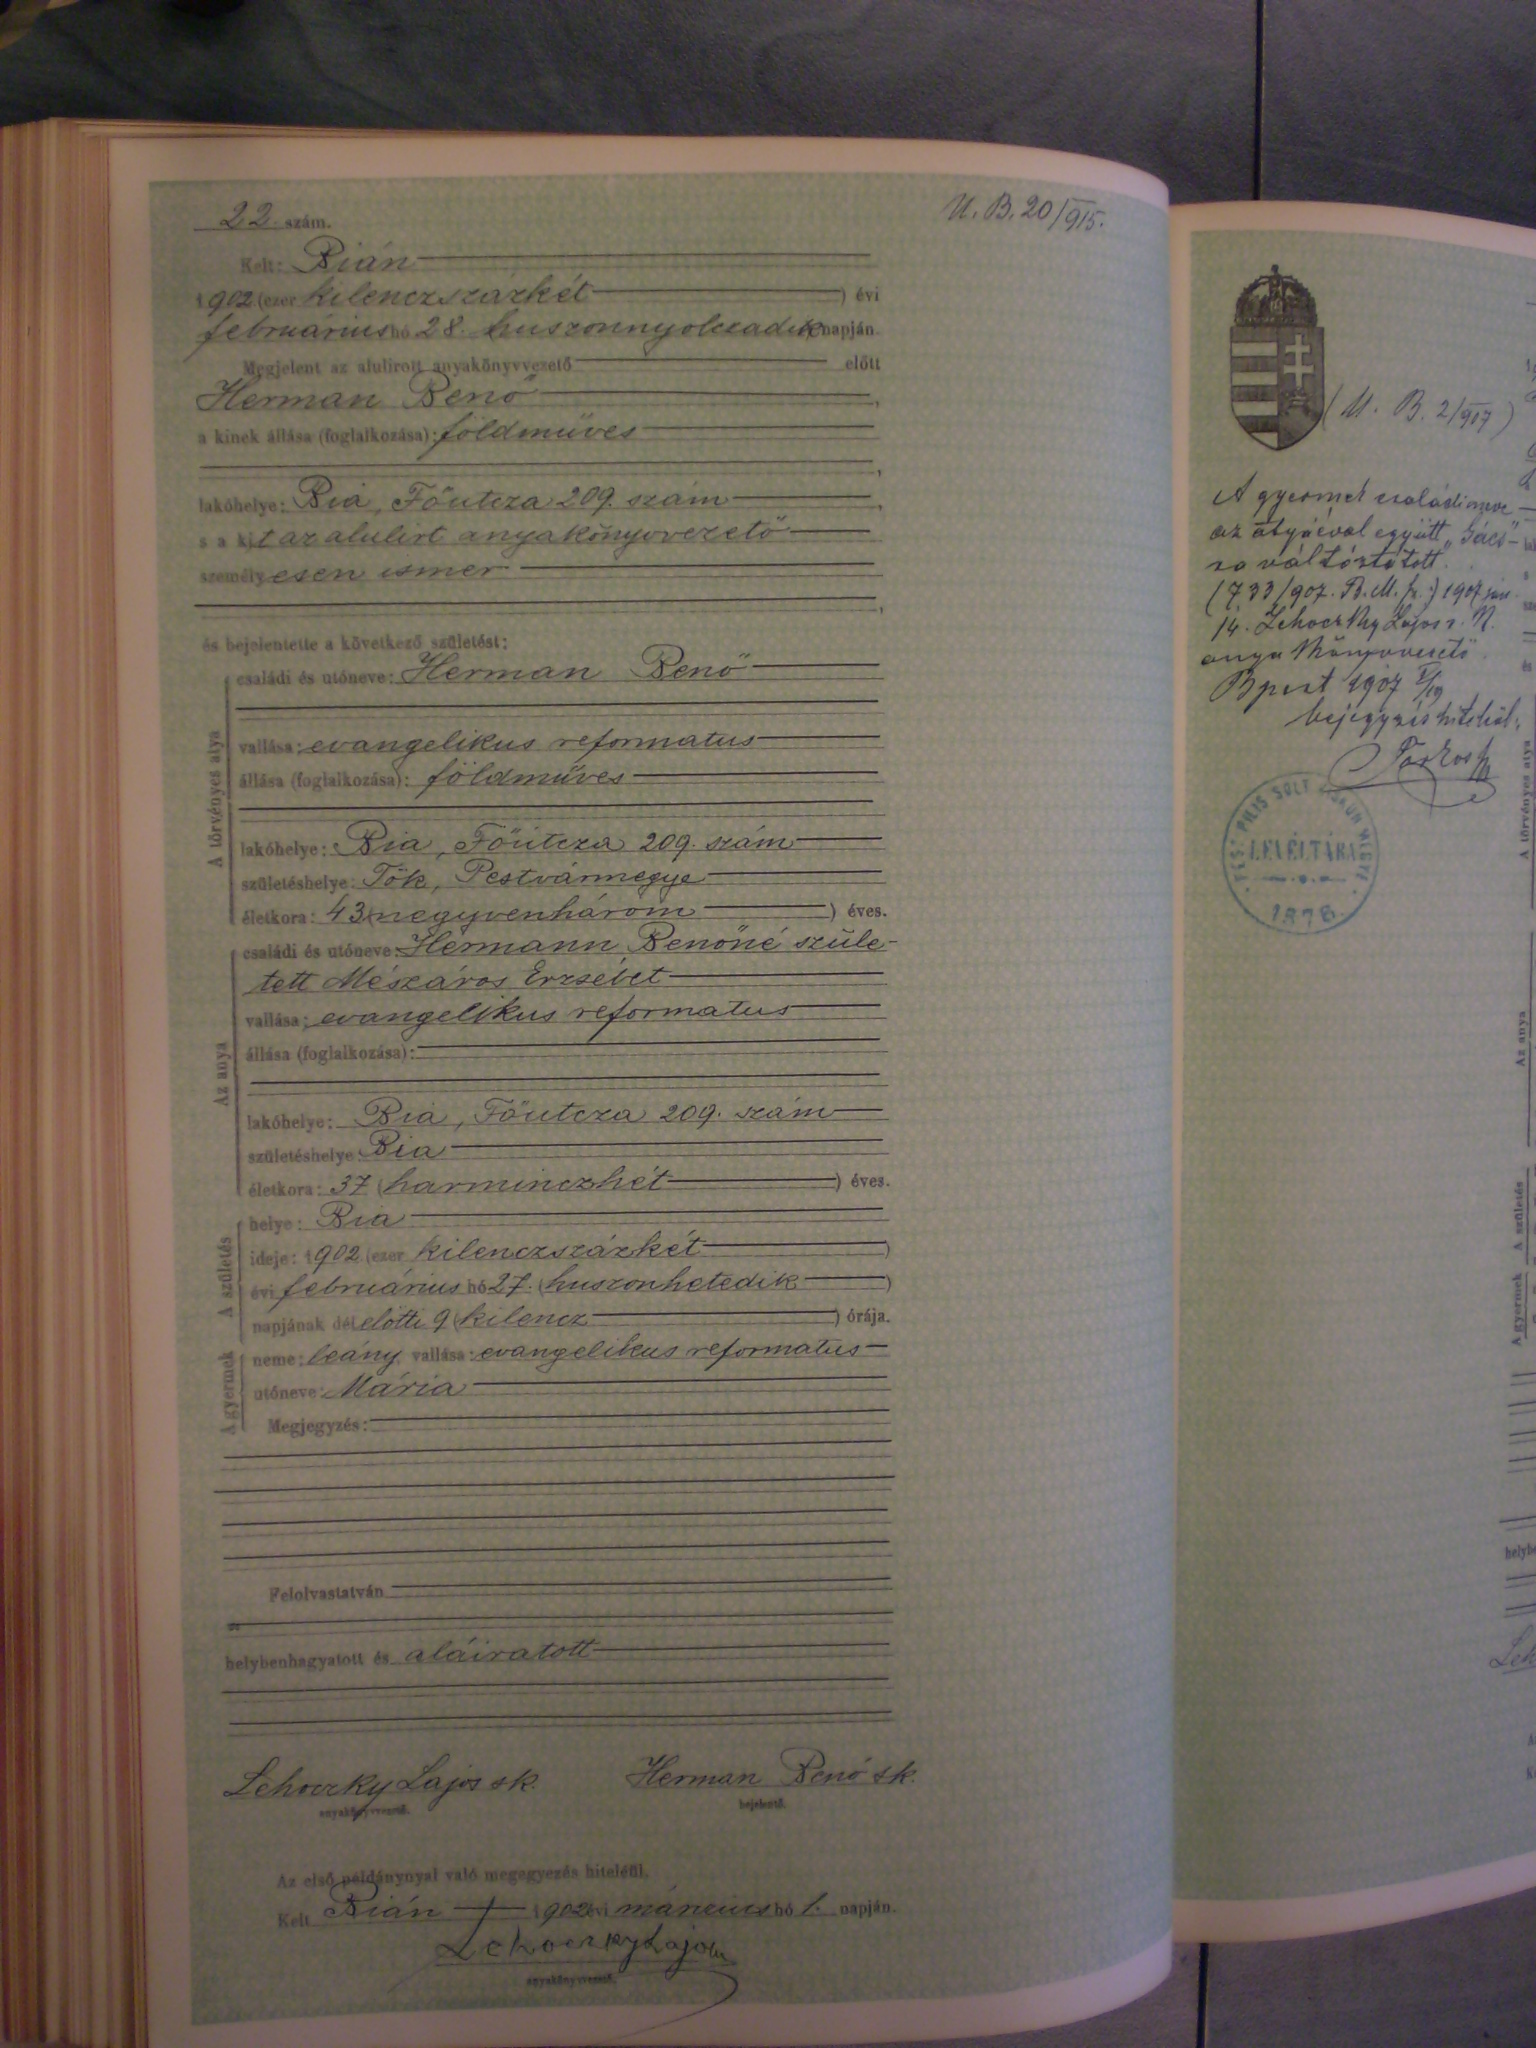 22. szám.
U. B. 20/915.
Kelt: Bián
1902 (ezer kilenczszázkét) évi
februárius hó 28. huszonnyolczadik napján.
Megjelent az alulirott anyakönyvvezető előtt
Herman Benő,
a kinek állása (foglalkozása): földműves
lakóhelye: Bia, Főutcza 209. szám,
s a kit az alulirt anyakönyvvezető
személyesen ismer,
és bejelentette a következő születést:
A törvényes atya
családi és utóneve: Herman Benő
vallása: evangelikus reformatus
állása (foglalkozása): földműves
lakóhelye: Bia, Főutcza 209. szám
születéshelye: Tök, Pestvármegye
életkora: 43 (negyvenhárom) éves.
Az anya
családi és utóneve: Hermann Benőné szüle-
tett Mészáros Erzsébet
vallása: evangelikus reformatus
állása (foglalkozása):
lakóhelye: Bia, Főutcza 209. szám
születéshelye: Bia
életkora: 37 (harminczhét) éves.
A születés
helye: Bia
ideje: 1902 (ezer kilenczszázkét)
évi februárius hó 27. (huszonhetedik)
napjának délelőtti 9 (kilencz) órája.
A gyermek
neme: leány vallása: evangelikus reformatus
utóneve: Mária
Megjegyzés:
Felolvastatván
helybenhagyatott és aláiratott
Lehoczky Lajos sk. Herman Benő sk.
anyakönyvvezető. bejelentő.
Az első példánynyal való megegyezés hiteléül.
Kelt Bián 1902 évi márczius hó 1. napján.
Lehoczky Lajos
anyakönyvvezető.
(U. B. 2/907)
A gyermek családi neve
az atyáéval együtt "Gács"-
ra változtatott.
(733/907. B.M. sz.) 1907 jan.
14. Lehoczky Lajos s. k.
anyakönyvvezető.
Bpest 1907 V/19
bejegyzés hiteléül:
PEST PILIS SOLT KISKUN MEGYE
LEVÉLTÁRA
1876.
A törvényes atya
Az anya
A születés
A gyermek
Leh